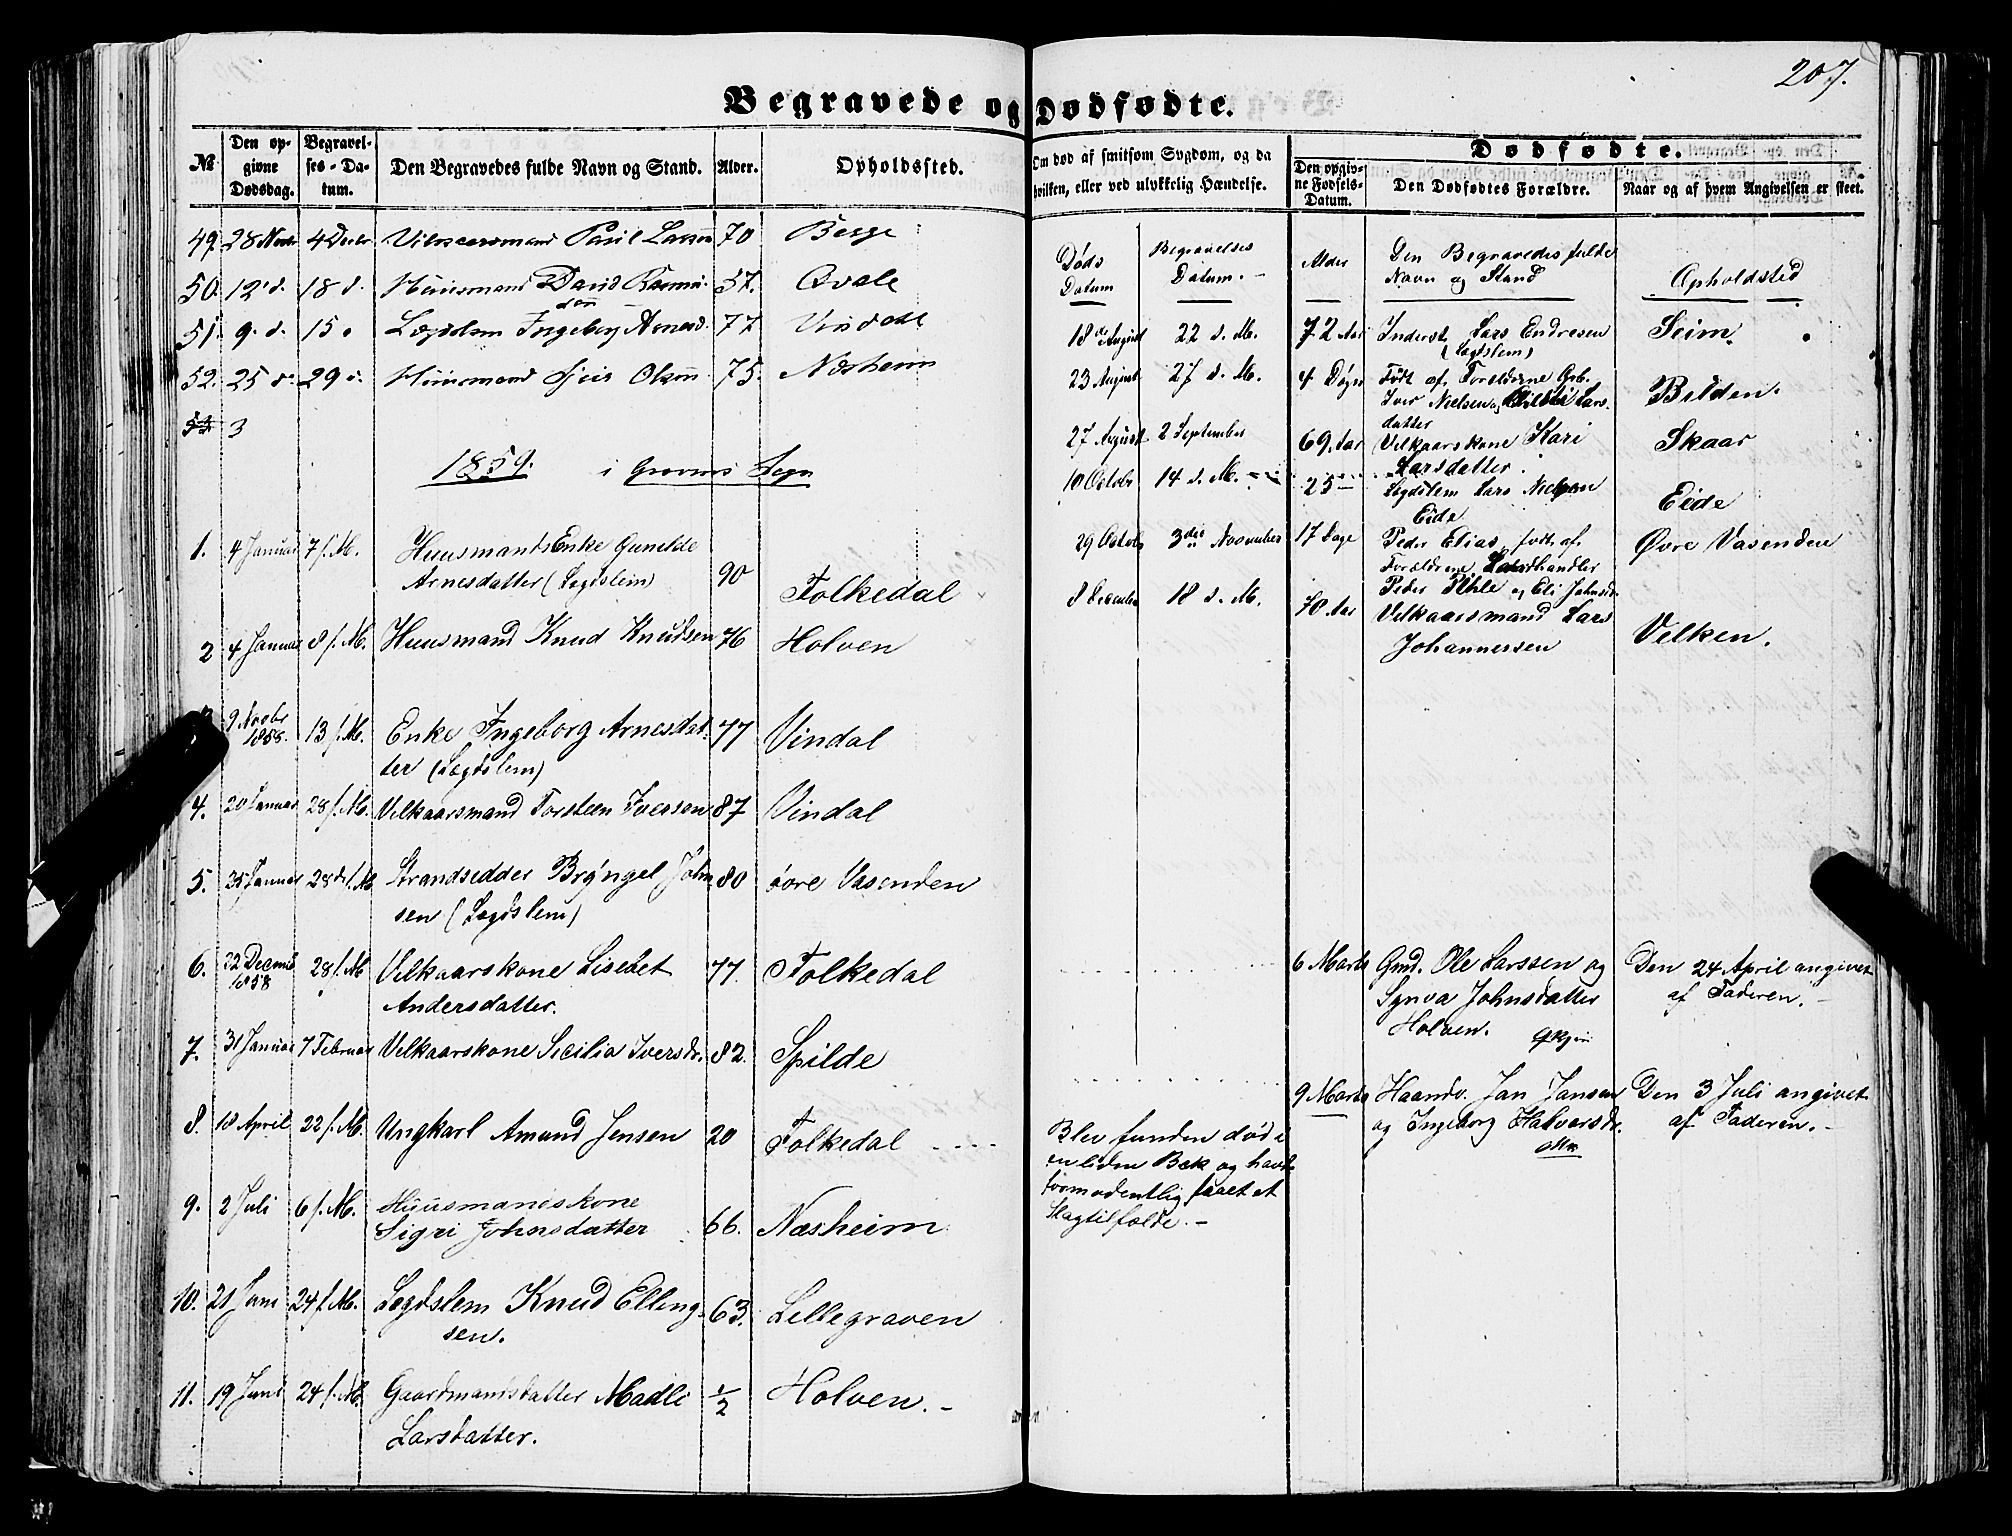 207.
Begravede og Dødfødte.
№
Den op-
givne
Dødsdag.
Begravel-
ses-Da-
tum.
Den Begravedes fulde Navn og Stand.
Alder.
Opholdssted.
Om død af smitsom Sygdom, og da
hvilken, eller ved ulykkelig Hændelse.
Dødfødte.
Den opgiv-
ne Fødsels-
Datum.
Den Dødfødtes Forældre.
Naar og af hvem Angivelsen er skeet.
49. 28 Novbr 4 Decbr Paul 70 Berge
50. 12 d. 18 d. Huusmand David Rasmu- 57. Qvale
sen
51. 9. d. 15 d Lægdslem Ingeborg Arnesd. 77 Vindal
52. 25 d. 29 d. Huusmand Sjur Olsen 75. Næsheim
53 3
1859. i Gravens Sogn
1. 4 Januar 7 f. M. HuusmandsEnke Gunilde
Arnesdatter (Lægdslem) 90 Folkedal
2 4 Januar 8 f. M. Huusmand Knud Knudsen 76 Holven
9 Novbr
1858. 13 f. M. Enke Ingeborg Arnesdat- 77 Vindal
ter (Lægdslem)
4. 20 Januar 28 f. M. Velkaarsmand Torsteen Iversen 87 Vindal
5. 25 Januar 28 d. f. M Strandsidder Bryngel John 80 övre Vasenden
sen (Lægdslem)
6. 22 Decemb
1858 28 f. M Velkaarskone Lisebet 77. Folkedal
Andersdatter.
7. 31 Januar 7 Februar Velkaarskone Sicilia Iversdr. 82. Spilde
8. 18 April 22 f. M. Ungkarl Amund Jensen 20 Folkedal
9. 2 Juli 6 f. M. Huusmandskone
Sigri Johnsdatter 66. Næsheim
10. 21 Juni 24 f. M. Lægdslem Knud Elling- 63. Lillegraven
sen.
11. 19 Juni 24 f. M. Gaardmandsdatter Madli 1/2 Holven.
Larsdatter.
Døds
Datum
Begravelses
Datum.
Alder
Den Begravedes fulde
Navn og Stand
Opholdsted
18de August 22 d. M. 72 Aar Inderst Lars Endresen Seim.
(Lægdslem)
23 August 27 d. M. 4 Døgn Født af Forældrene Grb.
Iver Nielsen og Lars- Bilden.
datter
27 August 2 September 69 Aar Velkaarskone Kari Skaar
Larsdatter.
10 Octobr 14 d. M. 25 Lægdslem Lars Nielsen
Eide Eide
29 Octobr 3die November 17 Dage Peder Elias, født af Øvre Vasenden
Forældrene Landhandler
Peder Pihle og Eli Johnsdr
8 December 18 d. M. 70 Aar Velkaarsmand Lars
Johannessen Velken.
6 Marts Gmd. Ole Larssen og Den 24 April angivet
Synva Johnsdatter af Faderen.
Holven.
9 Marts Haandv. Jan Jansen Den 3 Juli angivet
og Ingeborg Halvorsdr. af Faderen.
Blev funden død i
en liden Bæk og havde
formodentlig faaet et
Slagtilfælde.